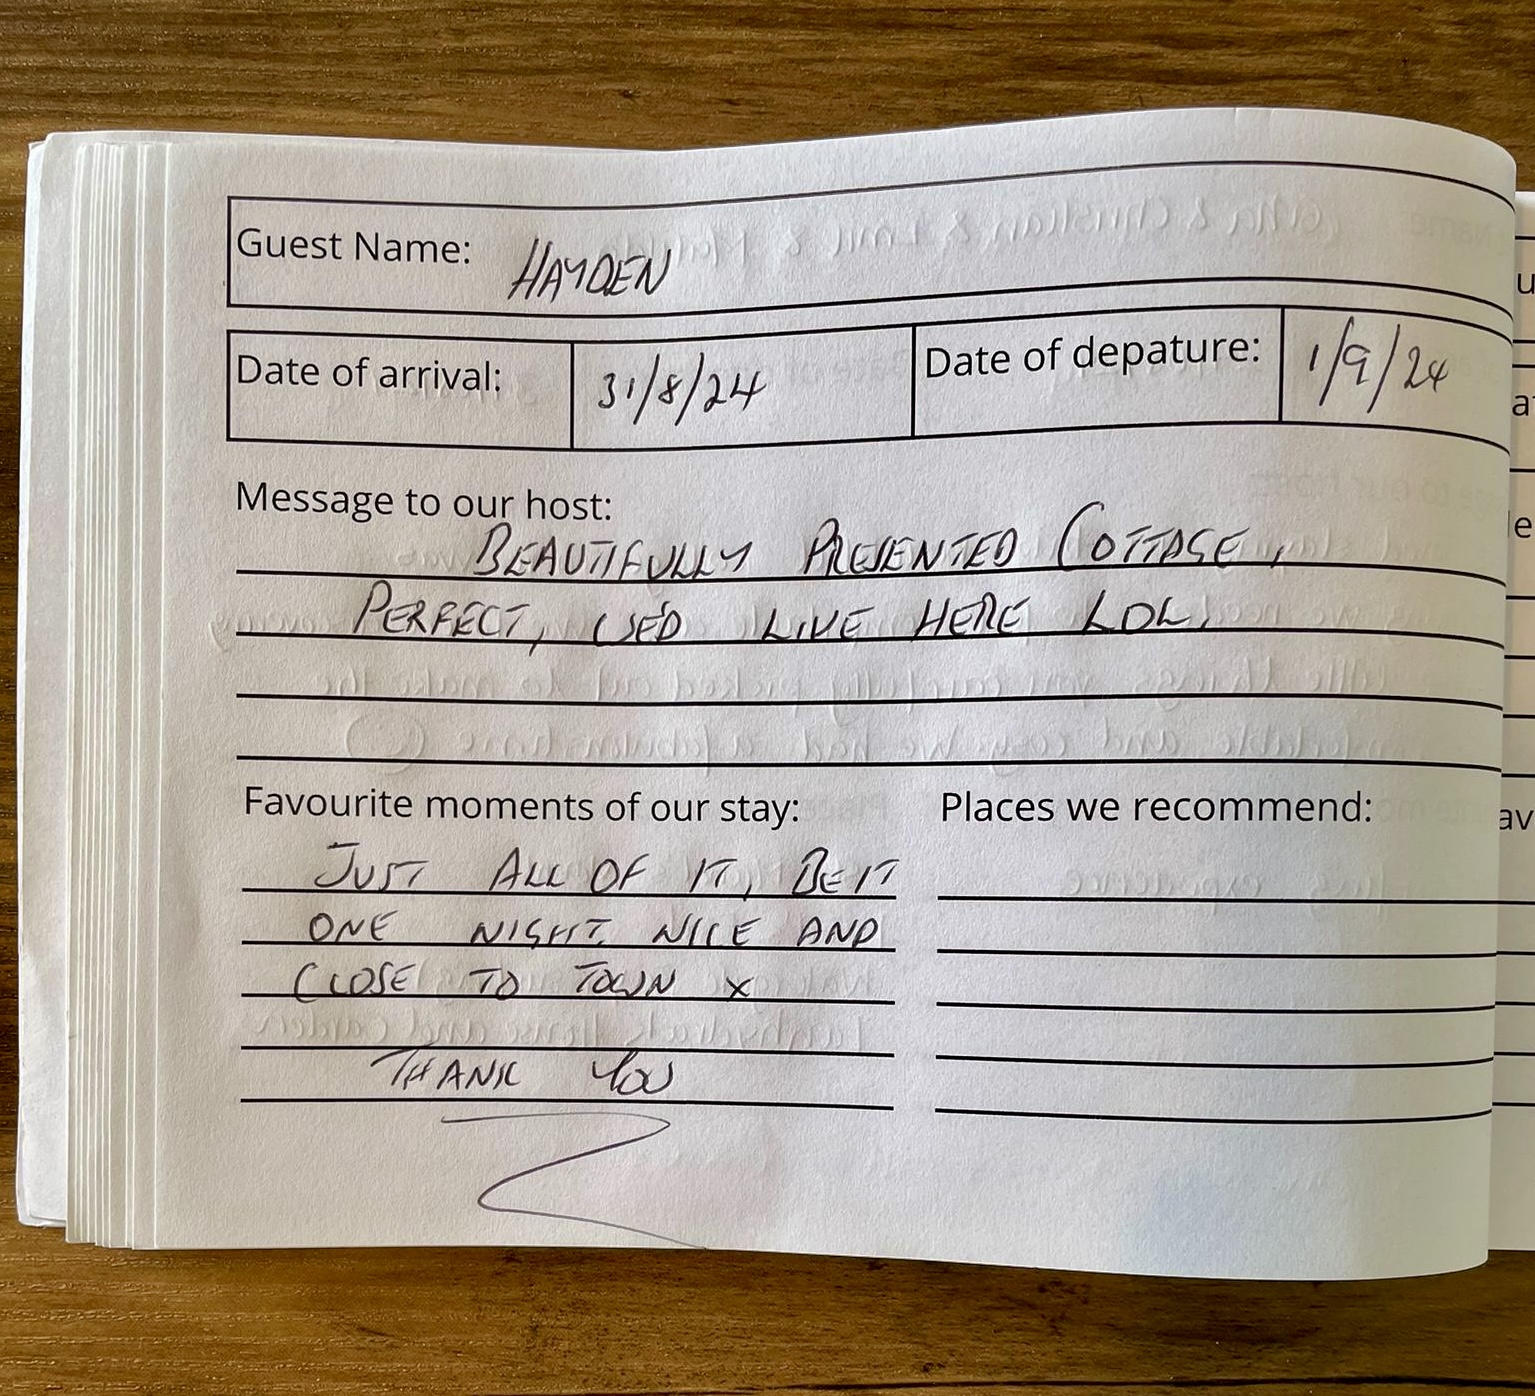 Guest Name: HAYDEN
Date of arrival: 31/8/24 Date of depature: 1/9/24
Message to our host:
BEAUTIFULLY PRESENTED COTTAGE,
PERFECT, WE'D LIVE HERE LOL.
Favourite moments of our stay:
JUST ALL OF IT, BE IT
ONE NIGHT. NICE AND
CLOSE TO TOWN x
THANK YOU
Places we recommend: